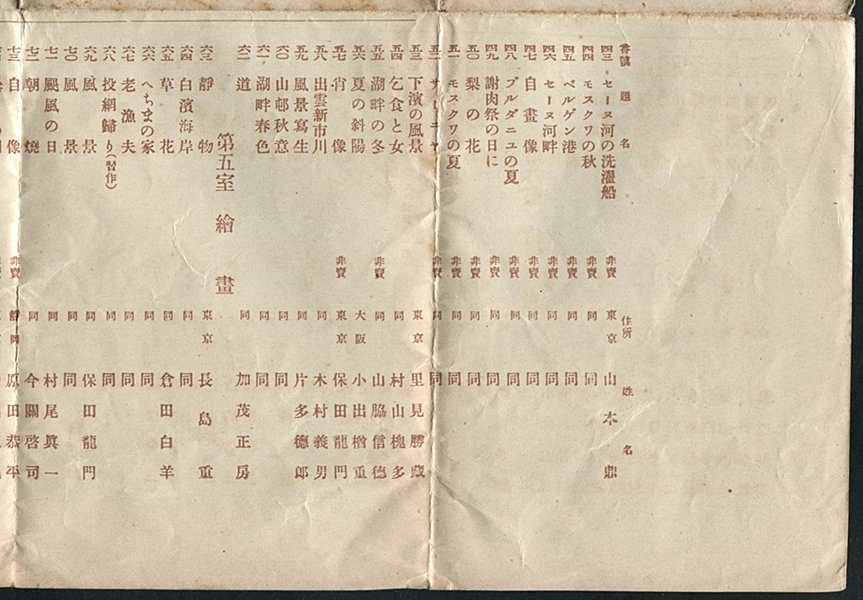 番號 題 名 住所 姓 名
四三 セーヌ河の洗濯船 非賣 東京 山本鼎
四四 モスクワの秋 非賣 同 同
四五 ベルゲン港 非賣 同 同
四六 セーヌ河畔 非賣 同 同
四七 自畫像 非賣 同 同
四八 ブルダニュの夏 非賣 同 同
四九 謝肉祭の日に 非賣 同 同
五〇 梨の花 非賣 同 同
五一 モスクワの夏 非賣 同 同
五二 サーニヤ 非賣 同 同
五三 下濱の風景 東京 里見勝藏
五四 乞食と女 同 村山槐多
五五 湖畔の冬 非賣 同 山脇信德
五六 夏の斜陽 大阪 小出楢重
五七 肖像 非賣 東京 保田龍門
五八 出雲新市川 同 木村義男
五九 風景寫生 同 片多德郎
六〇 山邨秋意 同 同
六一 湖畔春色 同 同
六二 道 同 加茂正房
第五室 繪畫
六三 靜物 東京 長島重
六四 白濱海岸 同 同
六五 草花 同 倉田白羊
六六 へちまの家 同 同
六七 老漁夫 同 同
六八 投網歸り(習作) 同 同
六九 風景 同 保田龍門
七〇 風景 同 同
七一 颶風の日 同 村尾眞一
七二 朝燒 同 今關啓司
七三 自像 非賣 靜岡 原田恭平